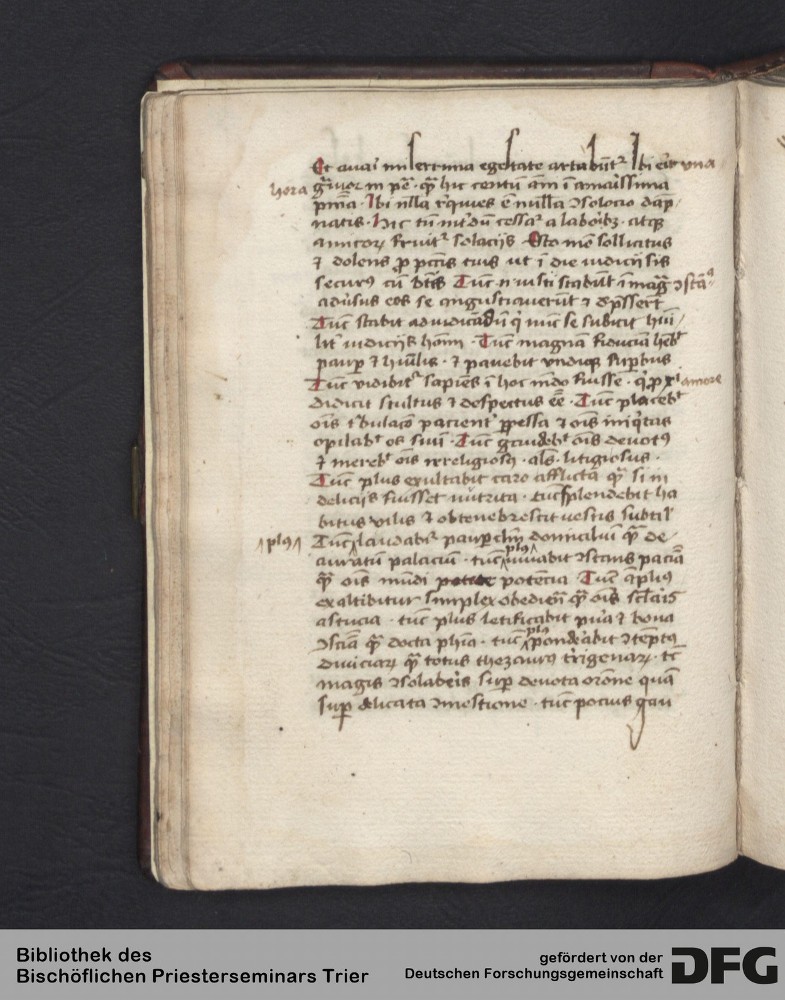 Et auari miserrima egestate artabūtʳ Ibi erit vna
hora gᵃuior in pē · qᵃ hic centū ām ī amarissima
pnīa · Ibi nlla rᵉquies ē nulla ↄsolacio dāp
natis · Hic tn̄ intʳdū cessaʳ a laboribꝫ · atqꝫ
amicoꝝ fruitʳ solacijs Esto mō sollicitus
⁊ dolens ꝓ pctīs tuis ut ī die iudicij sis
securꝰ cū btīs Tūc n̄ iusti stabūt ī magᵃ ↄstāᵃ
adūsus eos se angustiauerūt ⁊ dep̄sserūt
Tūc stabit ad iudicādū qⁱ nūc se subicit hūi
litʳ iudicijs hoīm · Tūc magnā fiduciā hēbᵗ
paup ⁊ hūilis · ⁊ pauebit vndiqꝫ supbus
Tūc vidibitʳ sapiēs ī hoc mūdo fuisse · qⁱ ꝓ xⁱ amore
didicit stultus ⁊ despectus eē · Tūc placebᵗ
oīs tⁱbulacō pacientʳ ꝑpessa ⁊ oīs iniqⁱtas
opilabᵗ os suū · Tūc gaudebᵗ oīs deuotꝰ
⁊ merebᵗ oīs irreligiosꝰ · als̄ · litigiosus ·
Tūc plus exultabit caro afflicta qᵃ si in
delicijs fuisset nutrita · tūc splendebit ha
bitus vilis ⁊ obtenebrescit uestis subtilʳ
plꝰ Tūc laudabiʳ paupclm̄ domicilui qᵃ̄ de
auratū palaciū · tūc plꝰ iuuabit ↄstans paciā
qᵃ̄ oīs mūdi potētia · Tūc āplius
exaltibitur simplex obediēn qᵃ̄ oīs sclaris
astucia · tūc plus letificabit pura ⁊ bona
ↄsciā qᵃ̄ docta phīa · tūc plꝰ ponderabit ↄtēptꝰ
diuiciaꝝ qᵃ̄ totus thezaurꝰ tʳrigenaꝝ · tc̄
magis ↄsolaberis sup deuota orōne quā
sup delicata ↄmestione · tūc pocius gau
Bibliothek des
Bischöflichen Priesterseminars Trier
gefördert von der
Deutschen Forschungsgemeinschaft
DFG